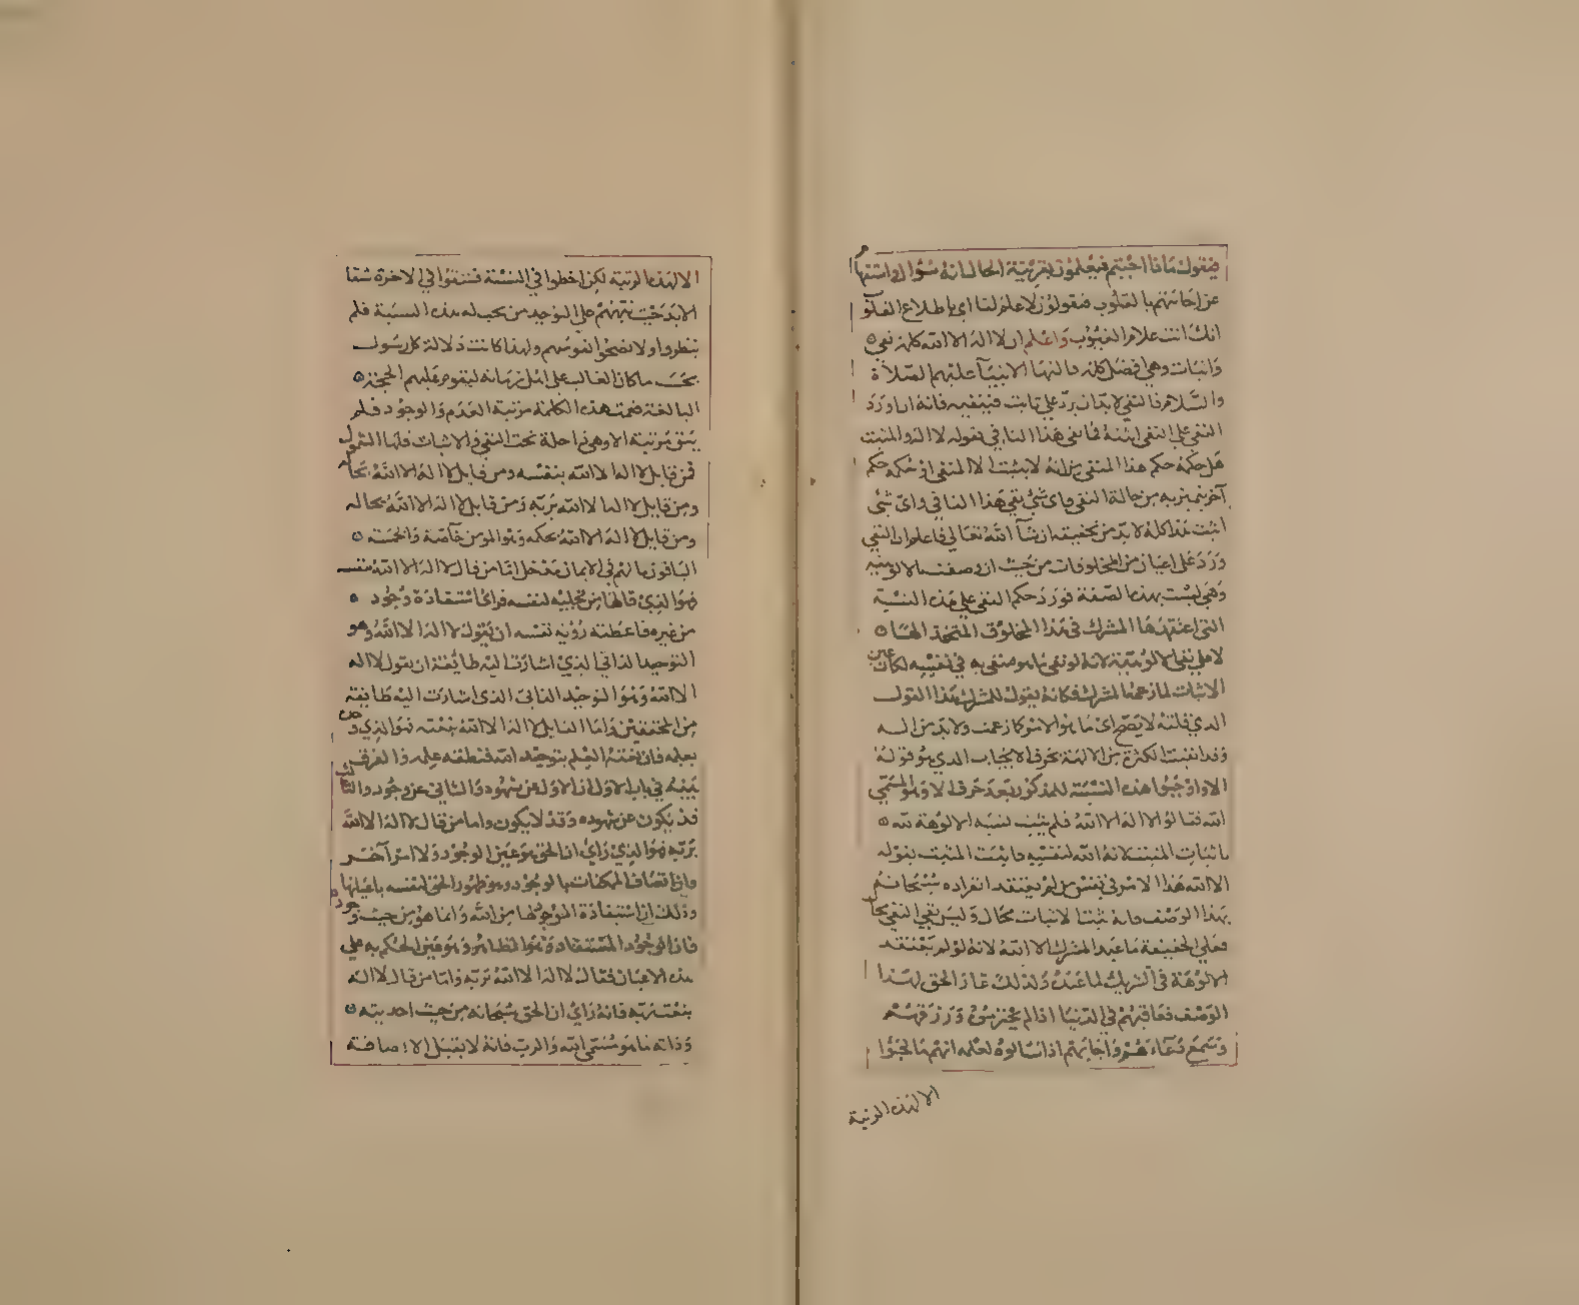 فيقول ماذا اجبتم فيعلمون بقرينة الحال انه سؤال واستفها
عن اجابتهم بالقلوب فيقولون لا علم لنا اي باطلاع القلو
انك انت علام الغيوب واعلم ان لا اله الا الله كلمة نفي
واثبات وهي افضل كلمة قالتها الانبيا عليهم الصلاة
والسلام فالنفي لابد ان يرد على ثابت فينفيه فانه ان ورد
النفي على النفي اثبته فما نفى هذا النافي بقوله لا اله والمثبت
هل حكمه حكم هذا المنفي من انه لا يثبت الا المنفي او حكمه حكم
آخر يتميز به من حالة النفي واي شي نفى هذا النافي واي شي
اثبت هذا كله لابد من تحقيقه ان شآ الله تعالى فاعلم ان النفي
ورد على اعيان من المخلوقات من حيث ان وصفت بالالوهية
وهي ليست بهذه الصفة فورد حكم النفي على هذه النسبة
التي اعتقدها المشرك في هذا المخلوق المتخذ الها
لا على نفي الالوهية لانه لو نفى ما هو منفي به في نفسه لكان عين
الاثبات لما زعمه المشرك فكانه يقول للمشرك هذا القول
الذي قلته لا يصح اي ما هو الامر كما زعمت ولا بد من اله
وقد انتفت الكثرة من الالهة بحرف الايجاب الذي هو قوله
الا واوجبوا هذه النسبة للمذكور بعد حرف الا وهو المسمى
الله فقالوا لا اله الا الله فلم يثبت نسبة الالوهة لله
باثبات المثبت لانه الله لنفسه فاثبت المثبت بقوله
الا الله هذا الامر في نفس من لم يعتقد انفراده سبحانه
بهذا الوصف فانه ثبت الاثبات محال وليس نفي النفي محا
فعلى الحقيقة ما عبد المشرك الا الله لانه لو لم يعتقد
الالوهة في الشريك لما عبده ولذلك غار الحق لهذا
الوصف فعاقبهم في الدنيا اذا لم يحترموه ورزقهم
وسمع دعاءهم واجابهم اذا سالوه لعلمه انهم ما لجئوا
الا لهذه الرتبة
الا لهذه الرتبة لكن اخطوا في النسبة فشقوا في الاخرة شقا
الابد حيث نبههم على التوحيد من يجب له هذه النسبة فلم
ينظروا ولا نصحوا نفوسهم ولهذا كانت دلالة كل رسول
بحسب ما كان الغالب على اهل زمانه ليقوم عليهم الحجة
البالغة فعمت هذه الكلمة مرتبة العدم والوجود فلم
يبق مرتبة الا وهي داخلة تحت النفي والاثبات فلها الشمول
فمن قايل لا اله الا الله بنفسه ومن قايل لا اله الا الله
ومن قايل لا اله الا الله بربه ومن قايل لا اله الا الله بحاله
ومن قايل لا اله الا الله بحكمه وهو المومن خاصة والخمسة
الباقون ما لهم في الايمان مدخل اما من قال لا اله الا الله بنفسه
فهو الذي قالها من تجليه لنفسه فراى استفادة وجود
من غيره فاعطته رؤية نفسه ان يقول لا اله الا الله وهو
التوحيد الذاتي الذي اشارت اليه طايفة ان يقول لا اله
الا الله وهو التوحيد الذاتي الذي اشارت اليه طايفة
من المحققين واما القايل لا اله الا الله بنعته فهو الذي
بعلمه فان نعته العلم بتوحيد الله فنطقه علمه والفرق
بينه في باب الاول ان الاول عن شهود والثاني عن وجود والثالث
قد يكون عن شهوده وقد لا يكون واما من قال لا اله الا الله
بربه فهو الذي راى ان الحق هو عين الوجود ولا امر آخر
وان اتصاف الممكنات بالوجود هو ظهور الحق لنفسه باعيانها
وذلك ان استفادة الموجود لها من الله وانما هو من حيث وجوده
فان الوجود المستفاد هو الظاهر وهو عين الحكم به على
هذه الاعيان فقال لا اله الا الله بربه واما من قال لا اله
بنعت ربه فانه راى ان الحق سبحانه من حيث احديته
وذاته ما هو مسمى الله والرب فانه لا يقبل الاضافة